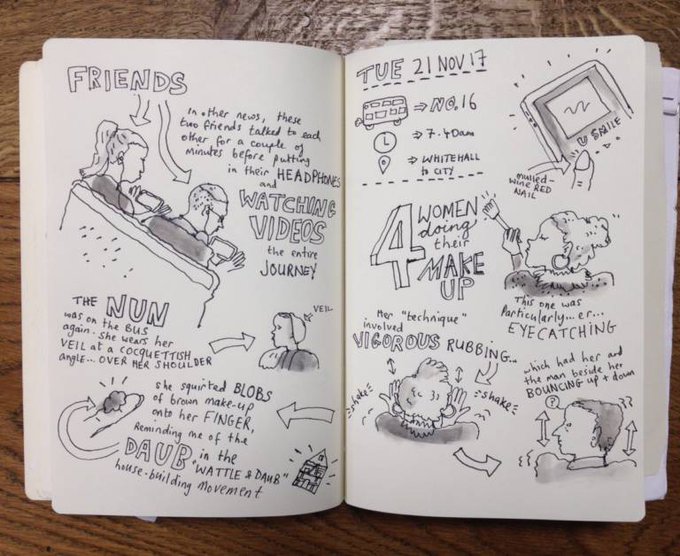 FRIENDS
In other news, these
two friends talked to each
other for a couple of
minutes before putting
in their HEADPHONES
and
WATCHING
VIDEOS
the entire
JOURNEY
THE NUN
was on the BUS
again. She wears her
VEIL at a COCQUETTISH
angle... OVER HER SHOULDER
VEIL
she squirted BLOBS
of brown make-up
onto her FINGER,
Reminding me of the
DAUB in the
"WATTLE & DAUB"
house-building movement
TUE 21 NOV 17
NO.16
7.40am
WHITEHALL
to CITY
U SMILE
mulled-
wine RED
NAIL
4 WOMEN
doing
their
MAKE
UP
This one was
Particularly... er...
EYECATCHING
Her "technique"
involved
VIGOROUS RUBBING...
shake
shake
which had her and
the man beside her
BOUNCING up + down
?